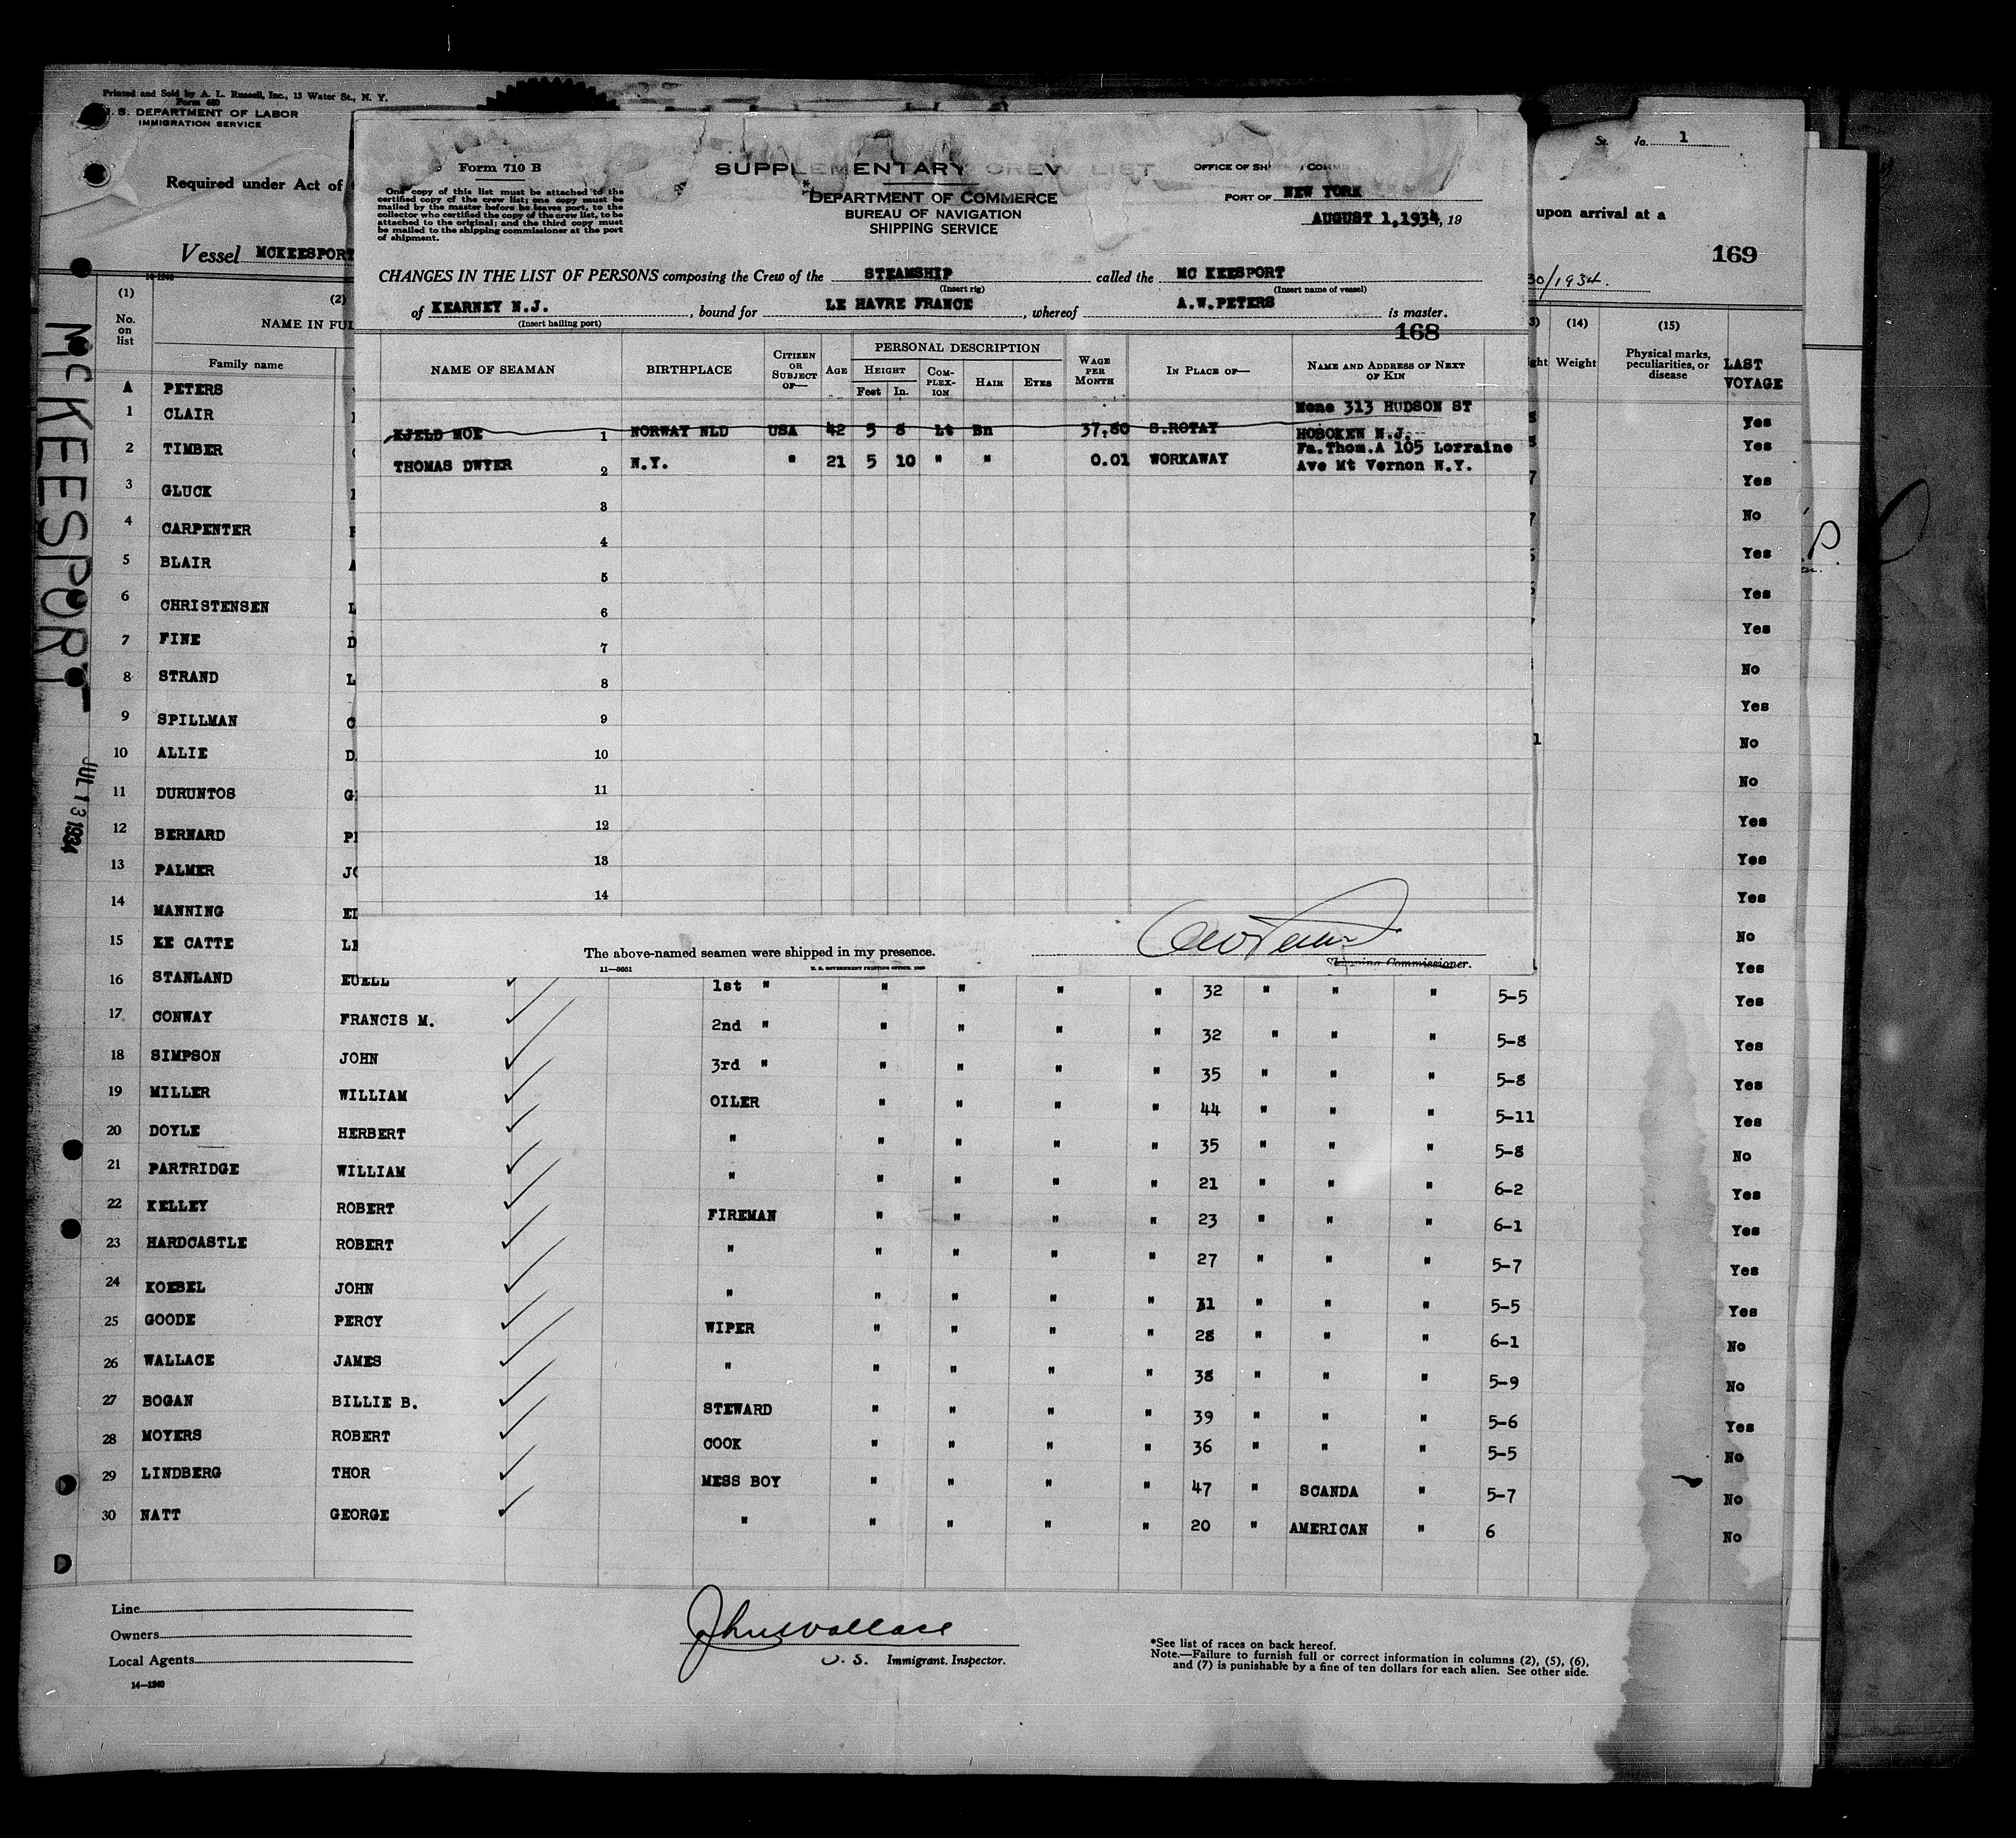 Printed and Sold by A. L. Russell, Inc., 13 Water St., N. Y.
Form 680
U. S. DEPARTMENT OF LABOR
IMMIGRATION SERVICE
Required under Act of
Vessel MCKEESPORT
14-1240
1
upon arrival at a
169
30/1934.
MCKEESPORT
JUL 13 1934
Form 710 B
One copy of this list must be attached to the
certified copy of the crew list; one copy must be
mailed by the master before he leaves port, to the
collector who certified the copy of the crew list, to be
attached to the original; and the third copy must
be mailed to the shipping commissioner at the port
of shipment.
SUPPLEMENTARY CREW LIST
DEPARTMENT OF COMMERCE
BUREAU OF NAVIGATION
SHIPPING SERVICE
OFFICE OF SH COMM
PORT OF NEW YORK
AUGUST 1,1934, 19
CHANGES IN THE LIST OF PERSONS composing the Crew of the STEAMSHIP called the MC KEESPORT
(Insert rig) (Insert name of vessel)
of KEARNEY N.J. , bound for LE HAVRE FRANCE , whereof A.W.PETERS is master.
(Insert hailing port)
168
NAME OF SEAMAN BIRTHPLACE CITIZEN OR SUBJECT OF— AGE PERSONAL DESCRIPTION HEIGHT Feet In. COMPLEXION HAIR EYES WAGE PER MONTH IN PLACE OF— NAME AND ADDRESS OF NEXT OF KIN
None 313 HUDSON ST
KJELD MOE 1 NORWAY NLD USA 42 5 8 Lt Bn 37,50 S.ROTAY HOBOKEN N.J.
Fa.Thom.A 105 Lorraine
THOMAS DWYER 2 N.Y. " 21 5 10 " " 0.01 WORKAWAY Ave Mt Vernon N.Y.
3
4
5
6
7
8
9
10
11
12
13
14
The above-named seamen were shipped in my presence.
11—8661 U. S. GOVERNMENT PRINTING OFFICE
Shipping Commissioner.
(1) (2) (14) (15)
No. on list NAME IN FUL ght Weight Physical marks, peculiarities, or disease LAST VOYAGE
Family name
A PETERS
1 CLAIR Yes
2 TIMBER Yes
3 GLUCK Yes
4 CARPENTER No
5 BLAIR Yes
6 CHRISTENSEN Yes
7 FINE Yes
8 STRAND No
9 SPILLMAN Yes
10 ALLIE No
11 DURUNTOS No
12 BERNARD Yes
13 PALMER Yes
14 MANNING Yes
15 KE CATTE No
Yes
16 STANLAND EUELL 1st " " " " " 32 " " " 5-5 Yes
17 CONWAY FRANCIS M. 2nd " " " " " 32 " " " 5-8 Yes
18 SIMPSON JOHN 3rd " " " " " 35 " " " 5-8 Yes
19 MILLER WILLIAM OILER " " " " 44 " " " 5-11 Yes
20 DOYLE HERBERT " " " " " 35 " " " 5-8 No
21 PARTRIDGE WILLIAM " " " " " 21 " " " 6-2 Yes
22 KELLEY ROBERT FIREMAN " " " " 23 " " " 6-1 Yes
23 HARDCASTLE ROBERT " " " " " 27 " " " 5-7 Yes
24 KOEBEL JOHN " " " " " 31 " " " 5-5 Yes
25 GOODE PERCY WIPER " " " " 28 " " " 6-1 No
26 WALLACE JAMES " " " " " 38 " " " 5-9 No
27 BOGAN BILLIE B. STEWARD " " " " 39 " " " 5-6 Yes
28 MOYERS ROBERT COOK " " " " 36 " " " 5-5 No
29 LINDBERG THOR MESS BOY " " " " 47 " SCANDA " 5-7 No
30 NATT GEORGE " " " " " 20 " AMERICAN " 6 No
Line
Owners
Local Agents
14—1240
John Wallace
U. S. Immigrant. Inspector.
*See list of races on back hereof.
Note.—Failure to furnish full or correct information in columns (2), (5), (6),
and (7) is punishable by a fine of ten dollars for each alien. See other side.